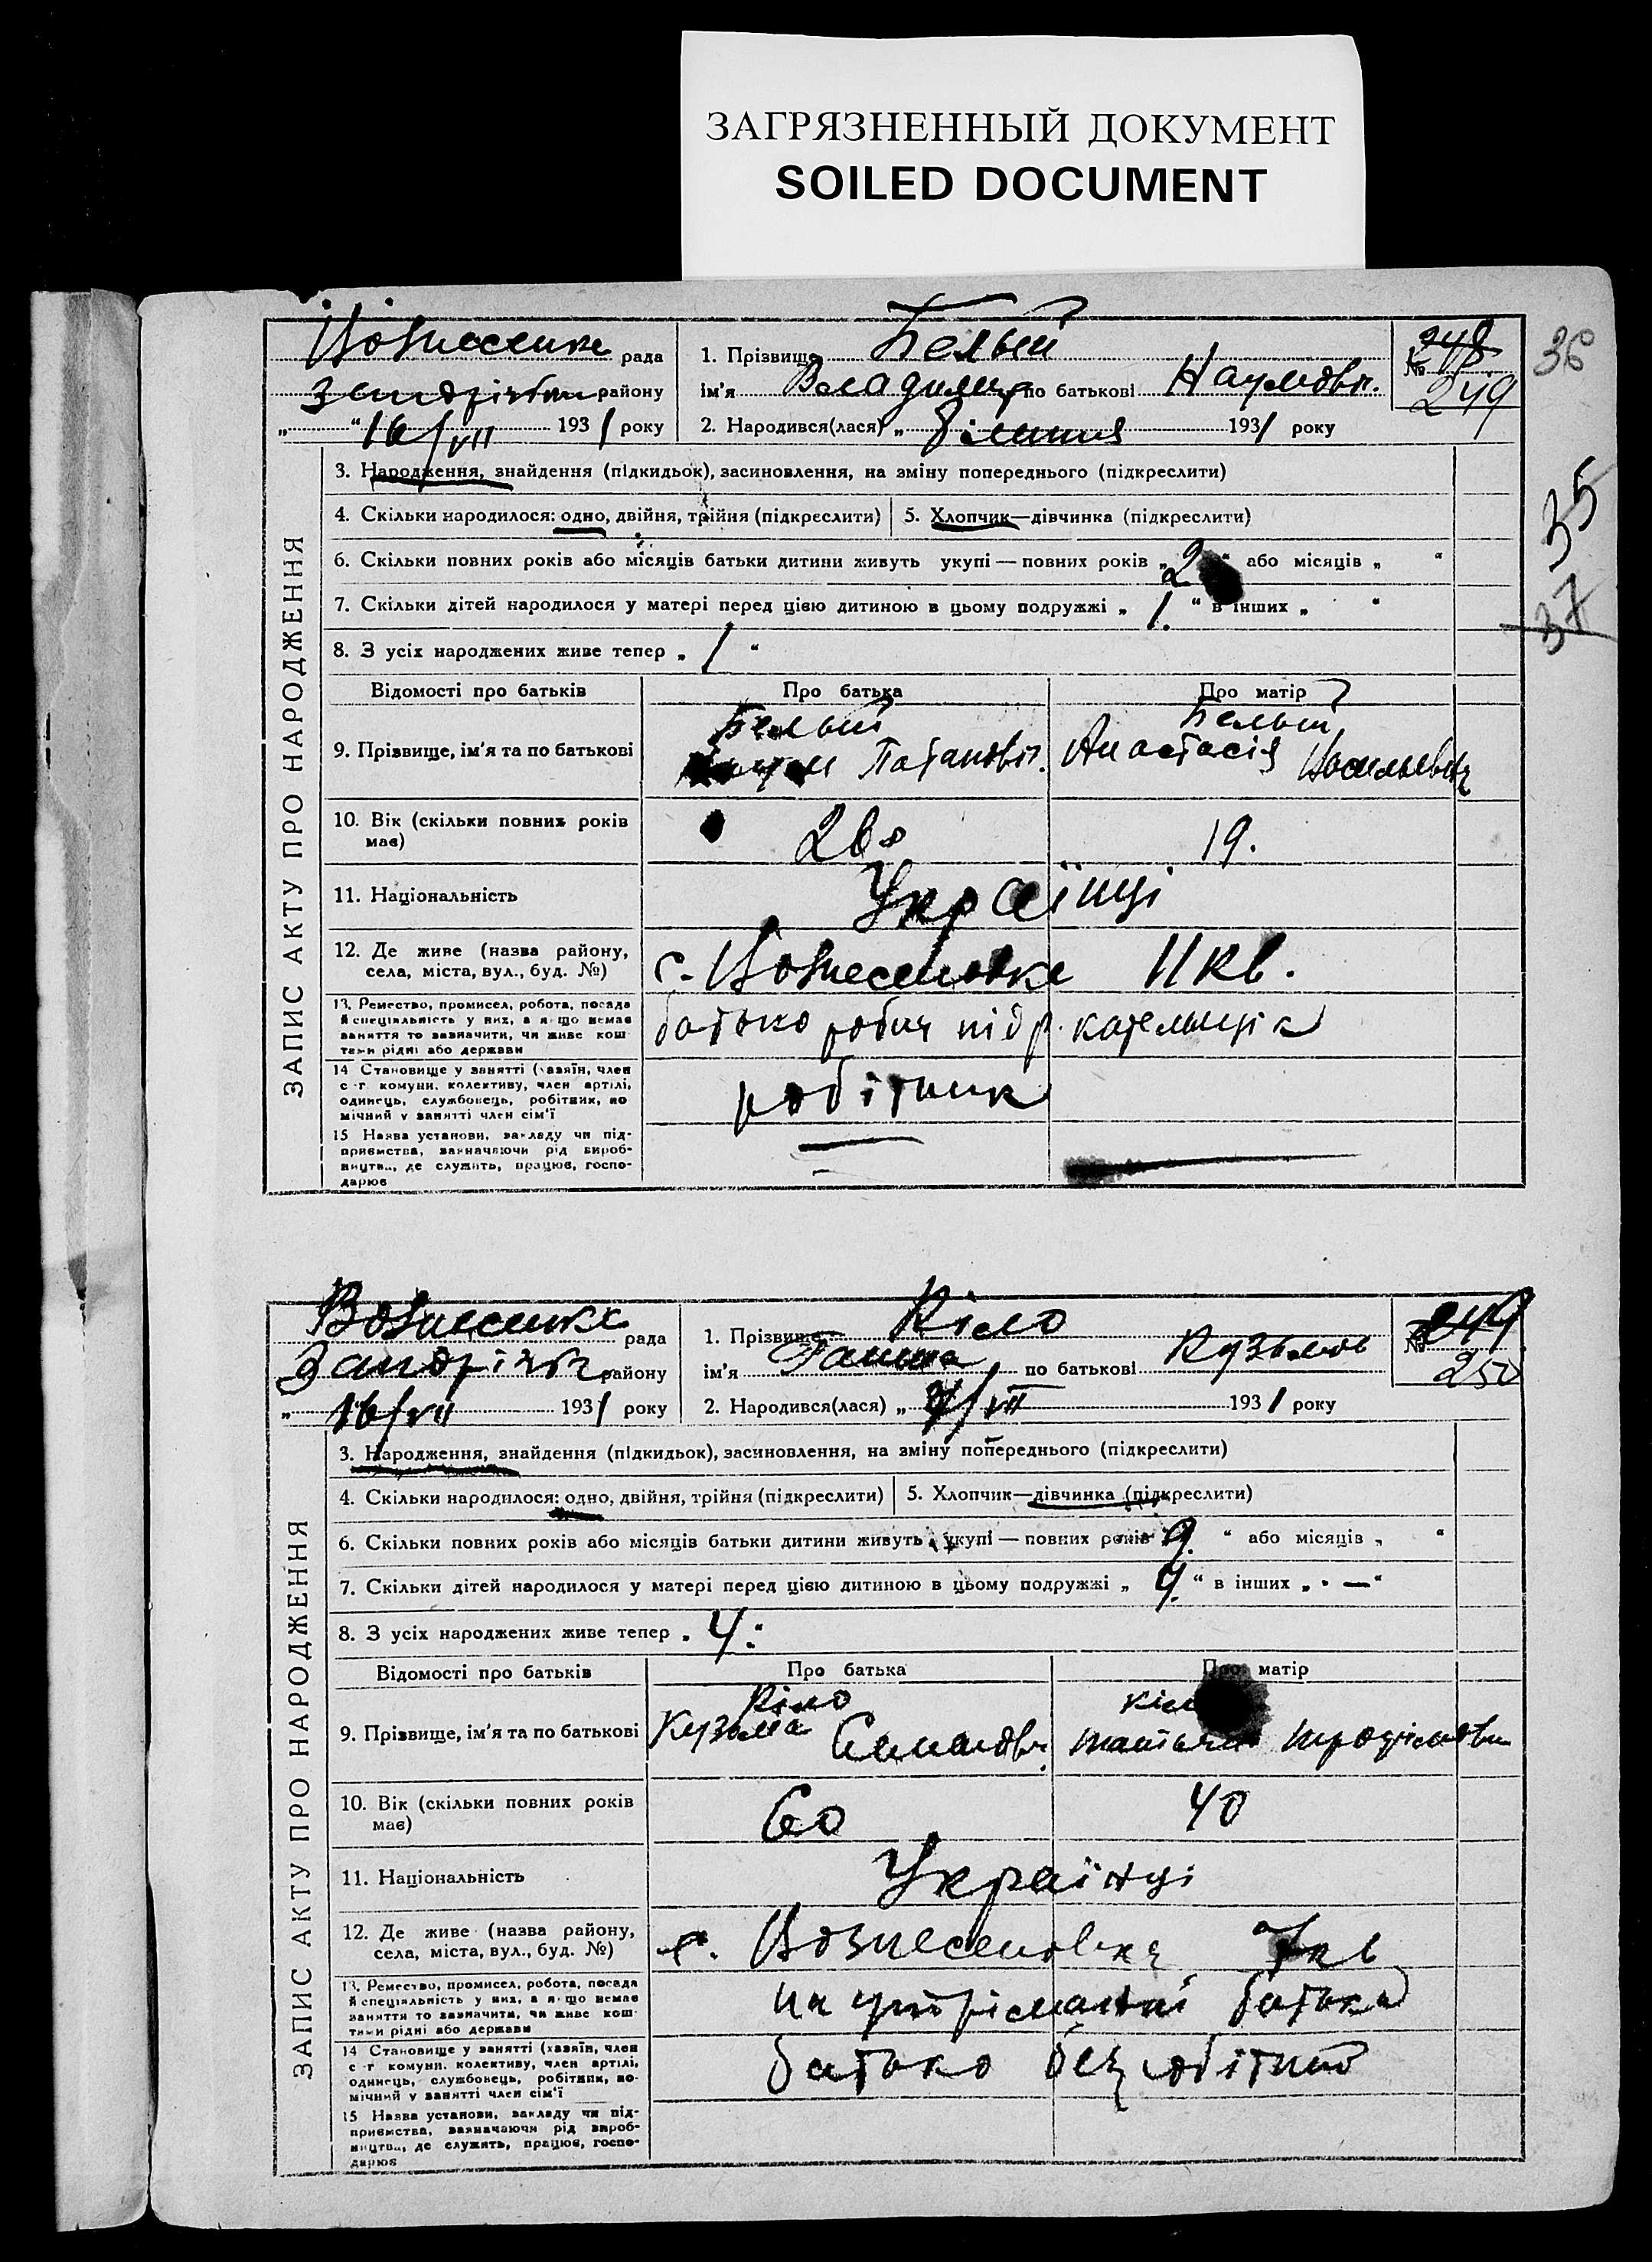 ЗАГРЯЗНЕННЫЙ ДОКУМЕНТ
SOILED DOCUMENT
рада
району
"16/VII 1931 року
1. Прізвище Белый
ім'я Владимир по батькові Наумовн.
2. Народився(лася) „ 1931 року
№ 248
249
36
35
37
ЗАПИС АКТУ ПРО НАРОДЖЕННЯ
3. Народження, знайдення (підкидьок), засиновлення, на зміну попереднього (підкреслити)
4. Скільки народилося: одно, двійня, трійня (підкреслити) 5. Хлопчик—дівчинка (підкреслити)
6. Скільки повних років або місяців батьки дитини живуть укупі — повних років „ 2 " або місяців „ "
7. Скільки дітей народилося у матері перед цією дитиною в цьому подружжі „ 1. " в інших „ "
8. З усіх народжених живе тепер „ 1 "
Відомості про батьків Про батька Про матір
Белый Белый
9. Прізвище, ім'я та по батькові Анастасія
10. Вік (скільки повних років має) 19.
11. Національність Українці
12. Де живе (назва району, села, міста, вул., буд. №) с. Вознесеновка 11 кв.
13. Ремество, промисел, робота, посада й спеціяльність у них, а якщо немає заняття то зазначити, чи живе коштами рідні або держави батько робит
14 Становище у занятті (хазяїн, член с-г комуни, колективу, член артілі, одинець, службовець, робітник, помічний у занятті член сім'ї робітник
15 Назва установи, закладу чи підприємства, зазначаючи рід виробництва, де служить, працює, господарює
рада
району
" 16/VII 1931 року
1. Прізвище Кіло
ім'я Ганна по батькові Кузьмов
2. Народився(лася) „ /VII 1931 року
№ 249
250
ЗАПИС АКТУ ПРО НАРОДЖЕННЯ
3. Народження, знайдення (підкидьок), засиновлення, на зміну попереднього (підкреслити)
4. Скільки народилося: одно, двійня, трійня (підкреслити) 5. Хлопчик—дівчинка (підкреслити)
6. Скільки повних років або місяців батьки дитини живуть укупі — повних років 9. " або місяців „ "
7. Скільки дітей народилося у матері перед цією дитиною в цьому подружжі „ " в інших „ — "
8. З усіх народжених живе тепер „ 4 "
Відомості про батьків Про батька Про матір
Кіло
9. Прізвище, ім'я та по батькові Кузьма
10. Вік (скільки повних років має) 60 40
11. Національність Українці
12. Де живе (назва району, села, міста, вул., буд. №) с. Вознесеновка 7 кв
13. Ремество, промисел, робота, посада й спеціяльність у них, а якщо немає заняття то зазначити, чи живе коштами рідні або держави на утріманні батька
14 Становище у занятті (хазяїн, член с-г комуни, колективу, член артілі, одинець, службовець, робітник, помічний у занятті член сім'ї батько
15 Назва установи, закладу чи підприємства, зазначаючи рід виробництва, де служить, працює, господарює